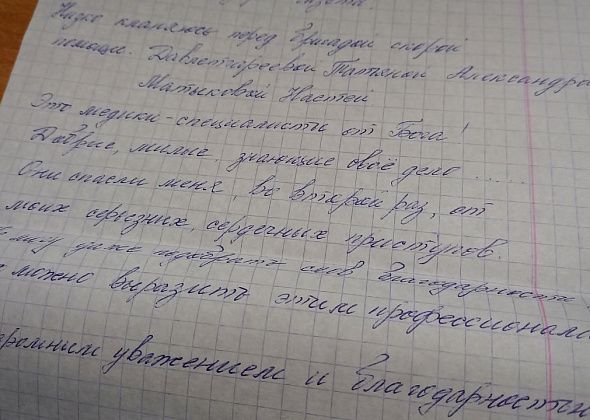 газета
Низко кланяюсь перед бригадой скорой
помощи. Давлетгареевой Татьяной Александро
Матыковой Настей
Это медики-специалисты от Бога!
Добрые, милые, знающие своё дело .....
Они спасли меня, во второй раз, от
моих серьезных, сердечных приступов.
могу даже подобрать слов благодарности
можно выразить этим профессионал
громным уважением и благодарностью